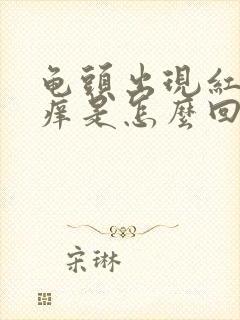 龟頭出現紅
痒是怎麼回
宋琳